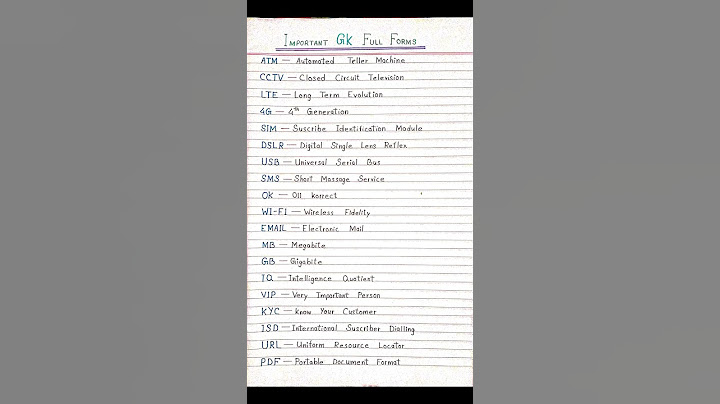 Important GK Full Forms
ATM — Automated Teller Machine
CCTV — Closed Circuit Television
LTE — Long Term Evolution
4G — 4th Generation
SIM — Suscribe Identification Module
DSLR — Digital Single Lens Reflex
USB — Universal Serial Bus
SMS — Short Massage Service
OK — Oll korrect
WI-FI — Wireless Fidelity
EMAIL — Electronic Mail
MB — Megabite
GB — Gigabite
IQ — Intelligence Quotient
VIP — Very Important Person
KYC — Know Your Customer
ISD — International Suscriber Dialling
URL — Uniform Resource Locator
PDF — Portable Document Format